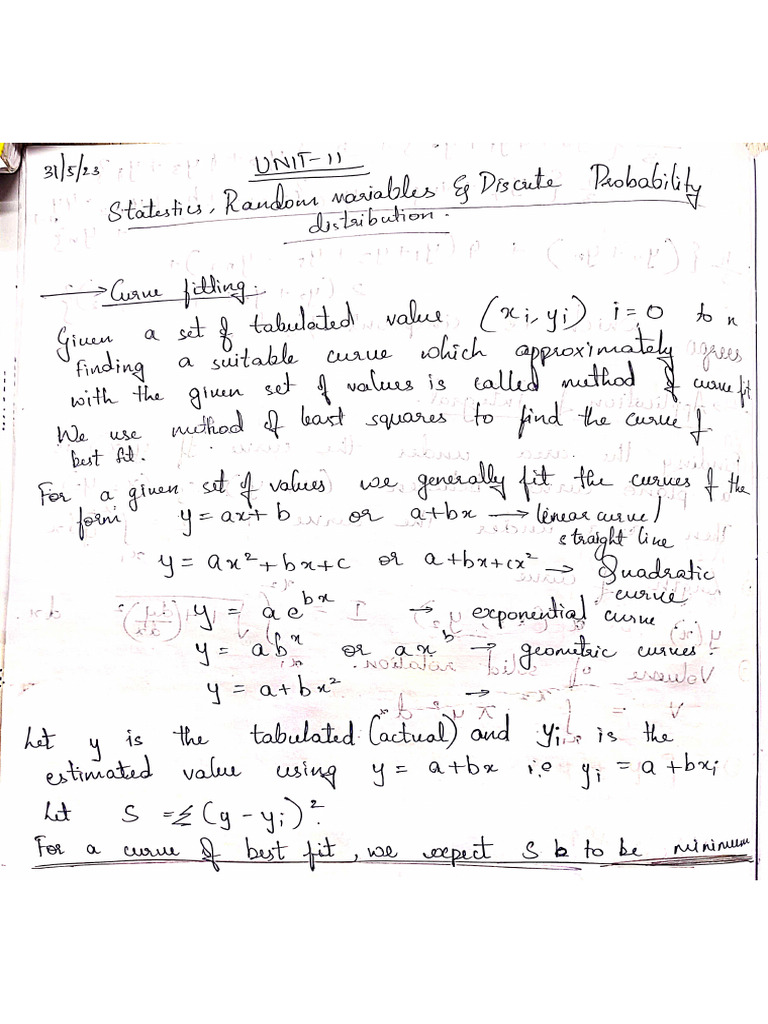 31/5/23
UNIT-11
Statestics, Random variables & Discrete Probability
distribution.
→ Curve fitting:
Given a set of tabulated value (xi, yi) i = 0 to n
finding a suitable curve which approximately agrees
with the given set of values is called method of curve fit
We use method of least squares to find the curve of
best fit.
For a given set of values we generally fit the curves of the
form y = ax + b or a + bx → linear curve /
straight line
y = ax² + bx + c or a + bx + cx² → Quadratic
curve
y = a e^bx → exponential curve
y = ab^x or ax^b → geometric curves.
y = a + bx²
Let y is the tabulated (actual) and yi is the
estimated value using y = a + bx i.e yi = a + bxi
Let S = Σ(y - yi)².
For a curve of best fit, we expect S b to be minimum